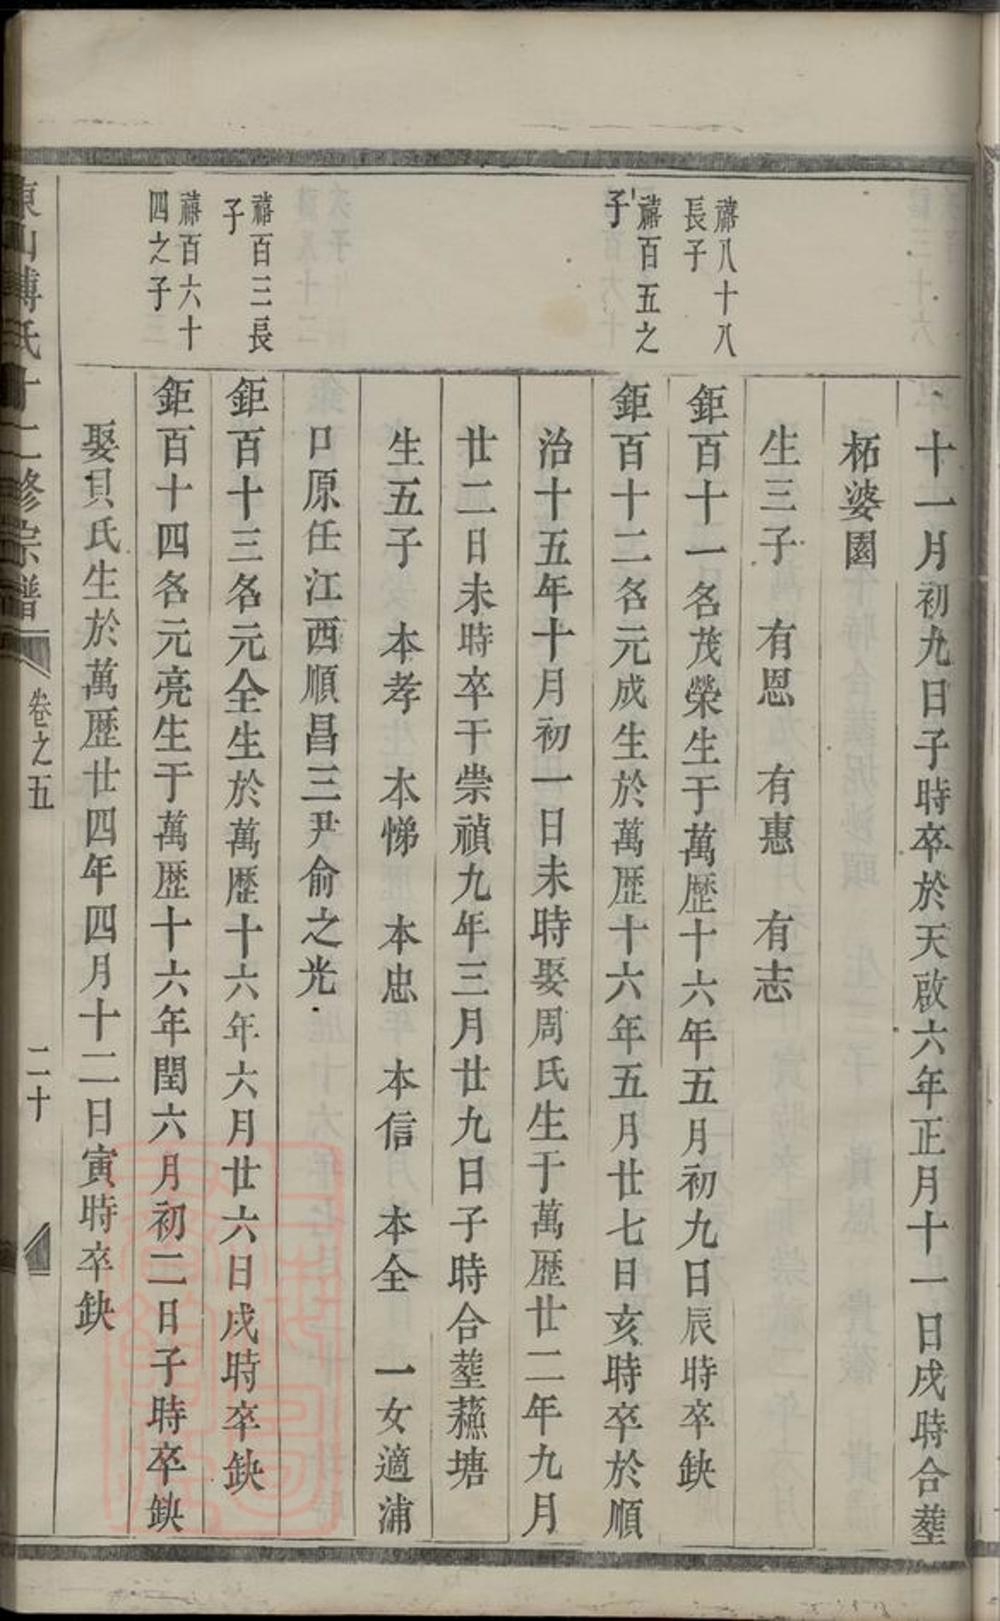 十一月初九日子時卒於天啟六年正月十一日戌時合塟
柘婆園
生三子　有恩　有惠　有志
禧八十八長子
鉅百十一名茂榮生于萬歷十六年五月初九日辰時卒缺
禧百五之子
鉅百十二名元成生於萬歷十六年五月廿七日亥時卒於順
治十五年十月初一日未時娶周氏生于萬歷廿二年九月
廿二日未時卒于崇禎九年三月廿九日子時合塟蘓塘
生五子　本孝　本悌　本忠　本信　本全　一女適浦
口原任江西順昌三尹俞之光
禧百三長子
鉅百十三名元全生於萬歷十六年六月廿六日戌時卒缺
禧百六十四之子
鉅百十四名元亮生于萬歷十六年閏六月初二日子時卒缺
娶貝氏生於萬歷廿四年四月十二日寅時卒缺
東山傅氏十二修宗譜
卷之五
二十